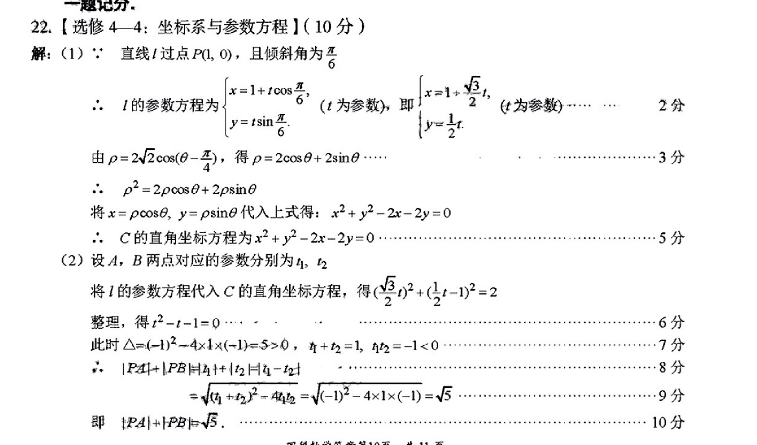 一题记分.
22.【选修 4—4：坐标系与参数方程】( 10 分 )
解：(1) ∵ 直线 l 过点 P(1, 0)，且倾斜角为 π/6
∴ l 的参数方程为 { x=1+tcos π/6, y=tsin π/6. (t 为参数)，即 { x=1+ √3/2 t, y= 1/2 t. (t 为参数) …… 2 分
由 ρ=2√2cos(θ−π/4)，得 ρ=2cosθ+2sinθ …… 3 分
∴ ρ²=2ρcosθ+2ρsinθ
将 x=ρcosθ, y=ρsinθ 代入上式得：x²+y²−2x−2y=0
∴ C 的直角坐标方程为 x²+y²−2x−2y=0 …… 5 分
(2) 设 A，B 两点对应的参数分别为 t₁, t₂
将 l 的参数方程代入 C 的直角坐标方程，得 (√3/2 t)²+(1/2 t−1)²=2
整理，得 t²−t−1=0 …… 6 分
此时 △=(−1)²−4×1×(−1)=5>0，t₁+t₂=1, t₁t₂=−1<0 …… 7 分
∴ |PA|+|PB|=|t₁|+|t₂|=|t₁−t₂| …… 8 分
=√((t₁+t₂)²−4t₁t₂) =√((−1)²−4×1×(−1)) =√5 …… 9 分
即 |PA|+|PB|=√5. …… 10 分